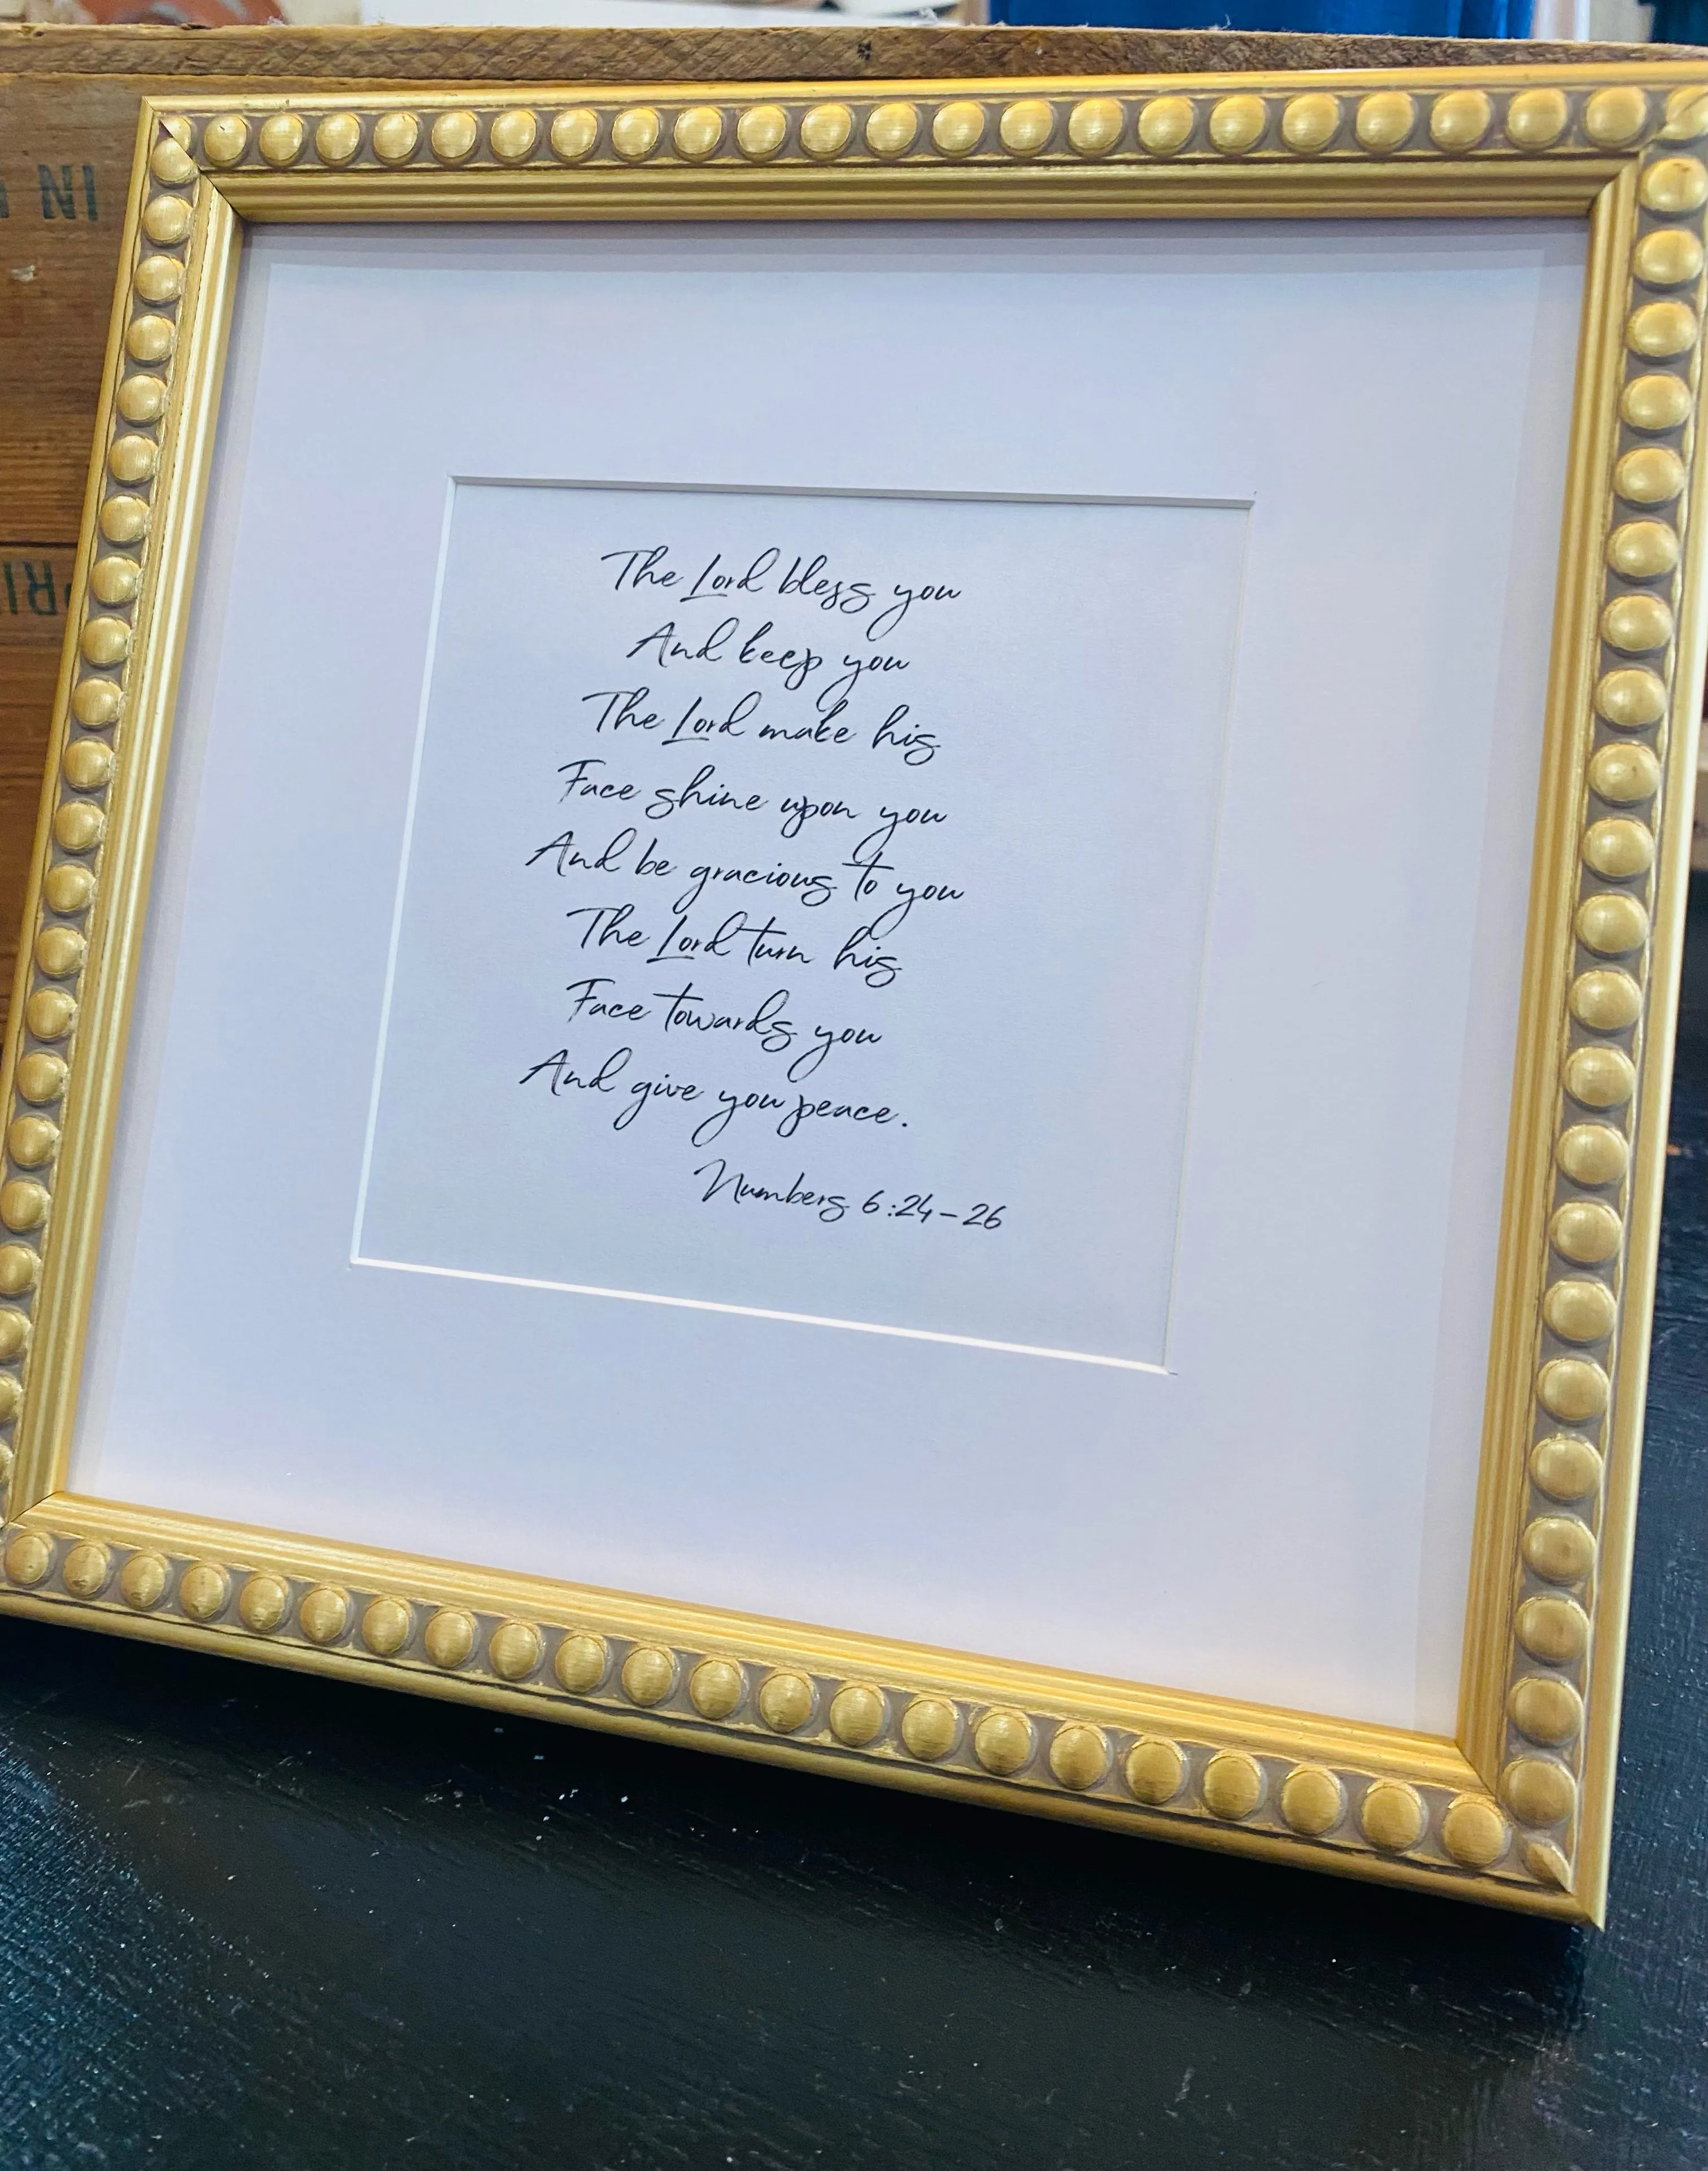 The Lord bless you
And keep you
The Lord make his
Face shine upon you
And be gracious to you
The Lord turn his
Face towards you
And give you peace.
Numbers 6:24-26